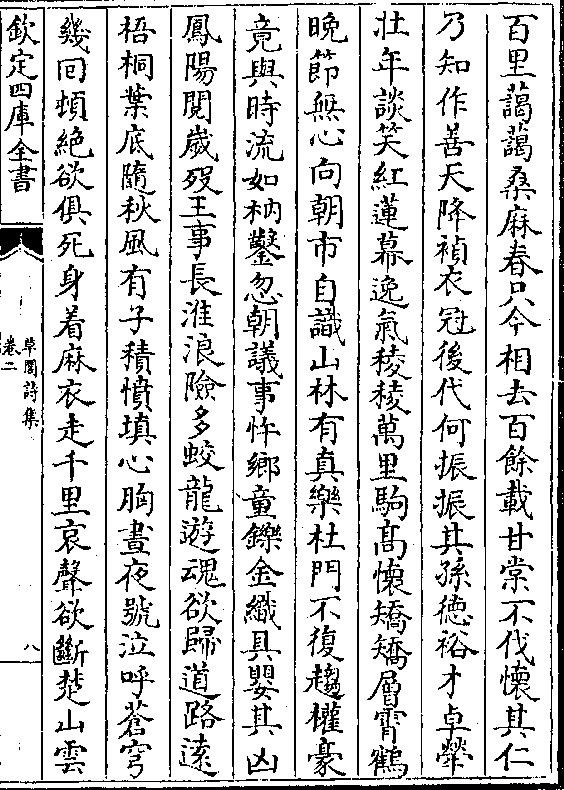 百里藹藹桑麻春只今相去百餘載甘棠不伐懷其仁
乃知作善天降禎衣冠後代何振振其孫德裕才卓犖
壯年談笑紅蓮幕逸氣稜稜萬里駒髙懷矯矯層霄鶴
晩節無心向朝市自識山林有真樂杜門不復趨權豪
竟與時流如枘鑿忽朝議事忤鄉童鑠金織具嬰其凶
鳳陽閱歲歿王事長淮浪險多蛟龍遊魂欲歸道路逺
梧桐葉底隨秋風有子積憤填心胸晝夜號泣呼蒼穹
幾囘頓絶欲俱死身着麻衣走千里哀聲欲斷楚山雲
欽定四庫全書
草閣詩集
卷二
八